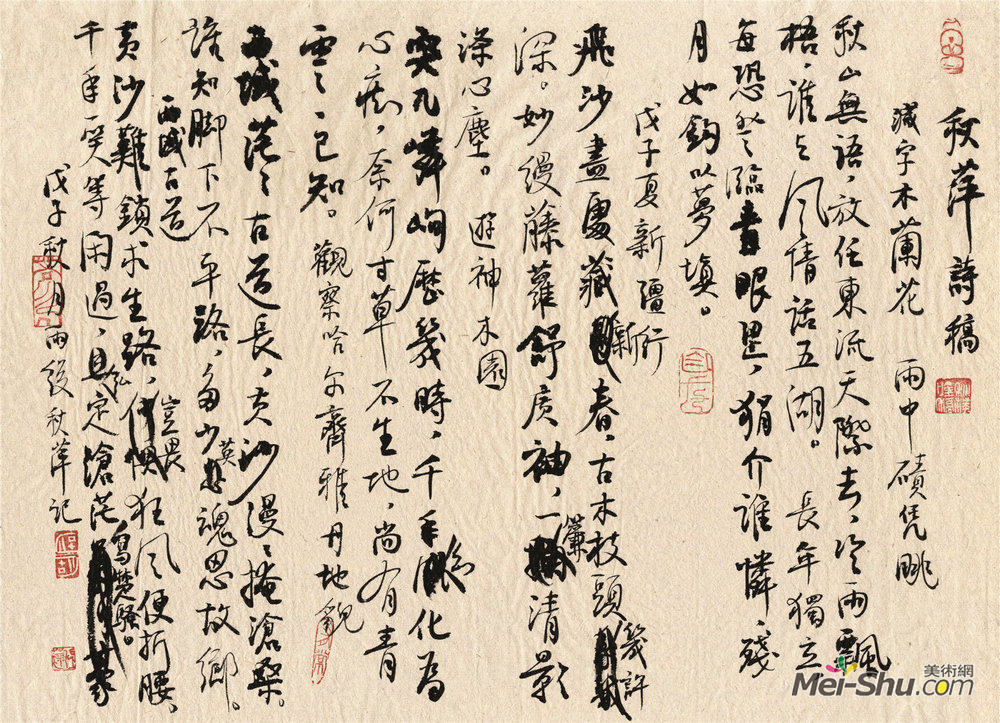 秋萍詩稿
減字木蘭花 雨中磧凭眺
秋山無語，放任東流天際去，冷雨飄
梧，誰與風情話五湖。長年獨立，
每恐登臨書眼里，狷介誰憐，殘
月如鈎以夢填。
戊子夏新疆行
飛沙盡處藏新春，古木枝頭幾許
深。妙縵藤蘿舒廣袖，一簾清影
滌心塵。遊神木園
突兀嶙峋歷幾時，千年幻化為
心痴，奈何寸草不生地，尚有青
雲雲已知。觀察哈尔齊雅丹地貌
西域茫茫古道長，黃沙漫漫掩滄桑。
誰知脚下不平路，多少英魂思故鄉。
西域古道
黃沙難鎖求生路，豈畏狂風便折腰，
千年一笑等閑過，定滄茫寫楚騷。
戊子秋月雨後秋萍記
美術網
Mei-Shu.com